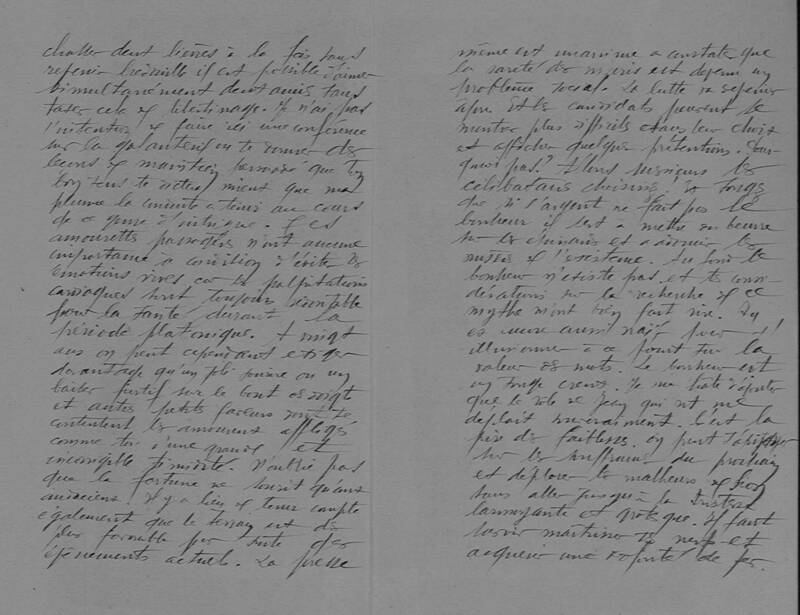 chasser deux lièvres à la fois sans
revenir bredouille il est possible d'aimer
simultanément deux amis sans
taxer cela de libertinage. Je n'ai pas
l'intention de faire ici une conférence
sur la galanterie ou te donner des
leçons de maintien persuadé que ton
bon sens te dictera mieux que ma
plume la conduite à tenir au cours
de ce genre d'intrigue. Ces
amourettes passagères n'ont aucune
importance à condition d'éviter les
émotions vives car les palpitations
cardiaques sont toujours
pour la santé durant la
période platonique. A vingt
ans on peut cependant exiger
davantage qu'un joli sourire ou un
baiser furtif sur le bout des doigts
et autres petites faveurs dont se
contentent les amoureux affligés
comme toi d'une grande et
incorrigible timidité. N'oublie pas
que la fortune ne sourit qu'aux
audacieux. Il y a lieu de tenir compte
également que le terrain est des
plus favorable par suite des
événements actuels. La presse
même est unanime à constater que
la rareté des maris est devenu un
problème social. La lutte va devenir
âpre et les candidats peuvent se
montrer plus difficiles dans leur choix
et afficher quelques prétentions. Pour
quoi pas? Allons messieurs les
célibataires choisissez et songez
que si l'argent ne fait pas le
bonheur il sert à mettre du beurre
sur les épinards et à adoucir les
misères de l'existence. Au fond le
bonheur n'existe pas et tes consi
dérations sur la recherche de ce
mythe m'ont bien fait rire. Tu
es encore aussi naïf pour t'
illusionner à ce point sur la
valeur des mots. Le bonheur est
un songe creux. Je me hâte d'ajouter
que le rôle de Jean qui rit me
déplait souverainement. C'est la
pire des faiblesses. On peut s'apitoyer
sur les souffrances du prochain
et déplorer les malheurs de
sans aller jusqu'à la tristesse
larmoyante et grotesque. Il faut
savoir maîtriser ses nerfs et
acquérir une volonté de fer.